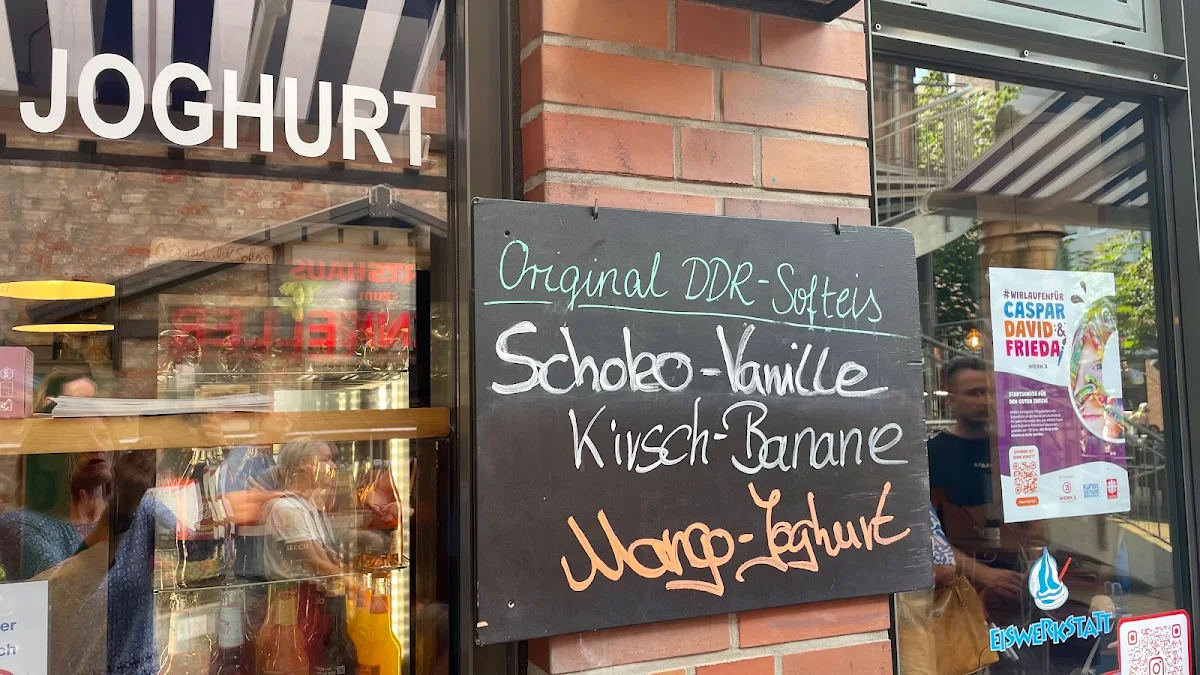 JOGHURT
Original DDR-Softeis
Schoko-Vanille
Kirsch-Banane
Mango-Joghurt
#WIRLAUFENFÜR
CASPAR
DAVID &
FRIEDA
WERK 3
STARTSCHUSS FÜR
DEN GUTEN ZWECK
EISWERKSTATT